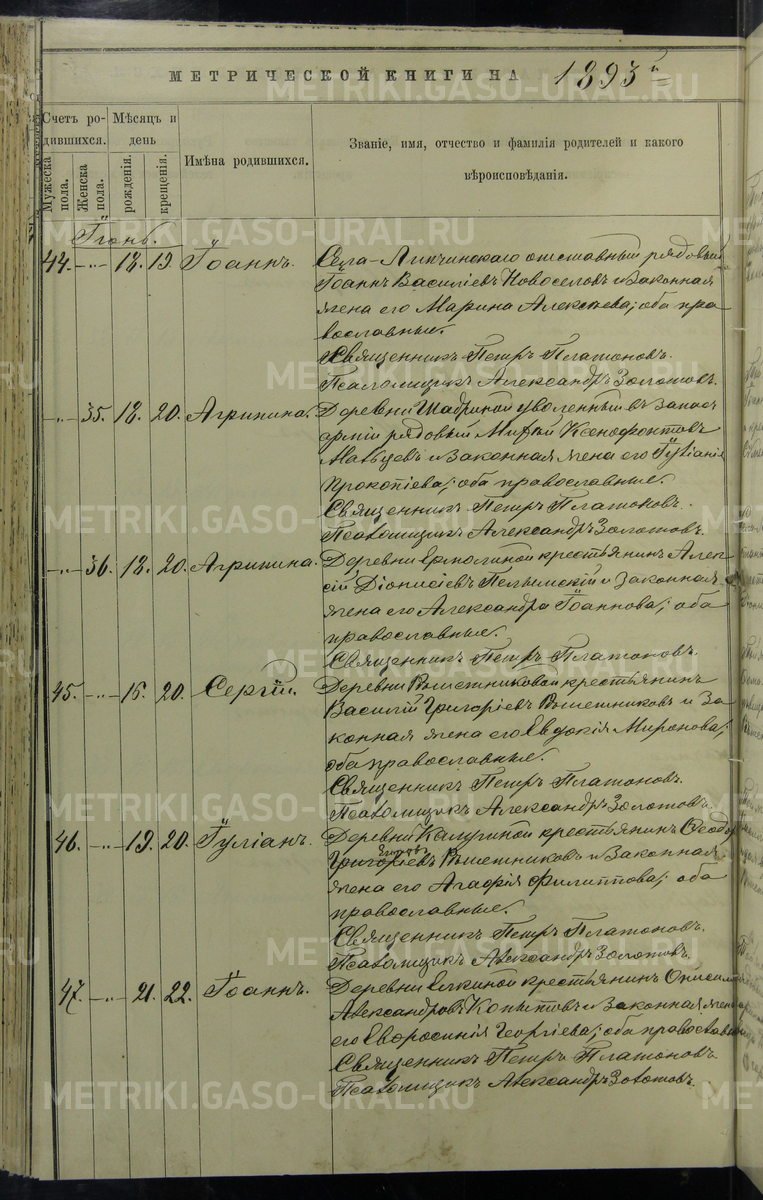 МЕТРИЧЕСКОЙ КНИГИ НА 1893 г.
Счетъ ро-
дившихся.
Мѣсяцъ и
день
Мужеска
пола.
Женска
пола.
рожденія.
крещенія.
Имѣна родившихся.
Званіе, имя, отчество и фамилія родителей и какого
вѣроисповѣданія.
Іюнь.
44. — „ — 18. 19. Іоаннъ. Села Липчинскаго отставный рядовый
Іоаннъ Василіевъ Новоселовъ и законная
жена его Марина Алексѣева; оба пра
вославные.
Священникъ Петръ Платоновъ.
Псаломщикъ Александръ Золотовъ.
— „ — 35. 18. 20. Агрипина. Деревни Шадриной уволенный въ запасъ
арміи рядовый Ксенофонтовъ
Мальцевъ и законная жена его Іуліанія
Прокопіева; оба православные.
Священникъ Петръ Платоновъ.
Псаломщикъ Александръ Золотовъ.
— „ — 36. 18. 20. Агрипина. Деревни Ермолиной крестьянинъ Алек-
сій Діонисіевъ Пелымскій и законная
жена его Александра Іоаннова; оба
православные.
Священникъ Петръ Платоновъ.
45. — „ — 16. 20. Сергій. Деревни Рѣшетниковой крестьянинъ
Василій Григоріевъ Рѣшетниковъ и за
конная жена его Евдокія Миронова;
оба православные.
Священникъ Петръ Платоновъ.
Псаломщикъ Александръ Золотовъ.
46. — „ — 19. 20. Іуліанъ. Деревни Калугиной крестьянинъ Ѳеодоръ
Егоровъ
Григоріевъ Рѣшетниковъ и законная
жена его Агафія Филиппова; оба
православные.
Священникъ Петръ Платоновъ.
Псаломщикъ Александръ Золотовъ.
47. — „ — 21. 22. Іоаннъ. Деревни Елкиной крестьянинъ
Александровъ Копытовъ и законная жена
его Евфросинія Георгіева; оба православные
Священникъ Петръ Платоновъ.
Псаломщикъ Александръ Золотовъ.
METRIKI.GASO-URAL.RU